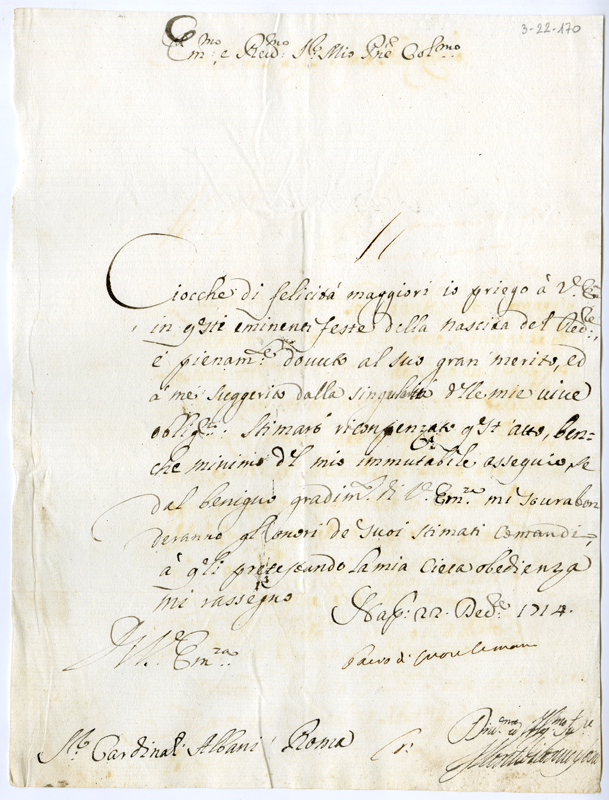 3-22-170
Em:mo e Reud:mo Sr. Mio Pne Colmo
Ciocche di felicità maggiori io priego à V. Em
in qsti eminenti feste della nascita del Red:re,
é pienam:te dovuto al suo gran merito, ed
à me suggerito dalla singularità delle mie vive
obligt:. Stimarò ricompenzato qst'atto, ben-
che minimo del mio immutabile ossequio, se
dal benigno gradim:to di V. Em:ra mi sourabon
deranno gl'onori de suoi stimati comandi,
à qli protestando la mia cieca obedienza
mi rassegno Nap: 22. Decre 1714.
V. Em:ra
Sr. Cardinal Albani Roma